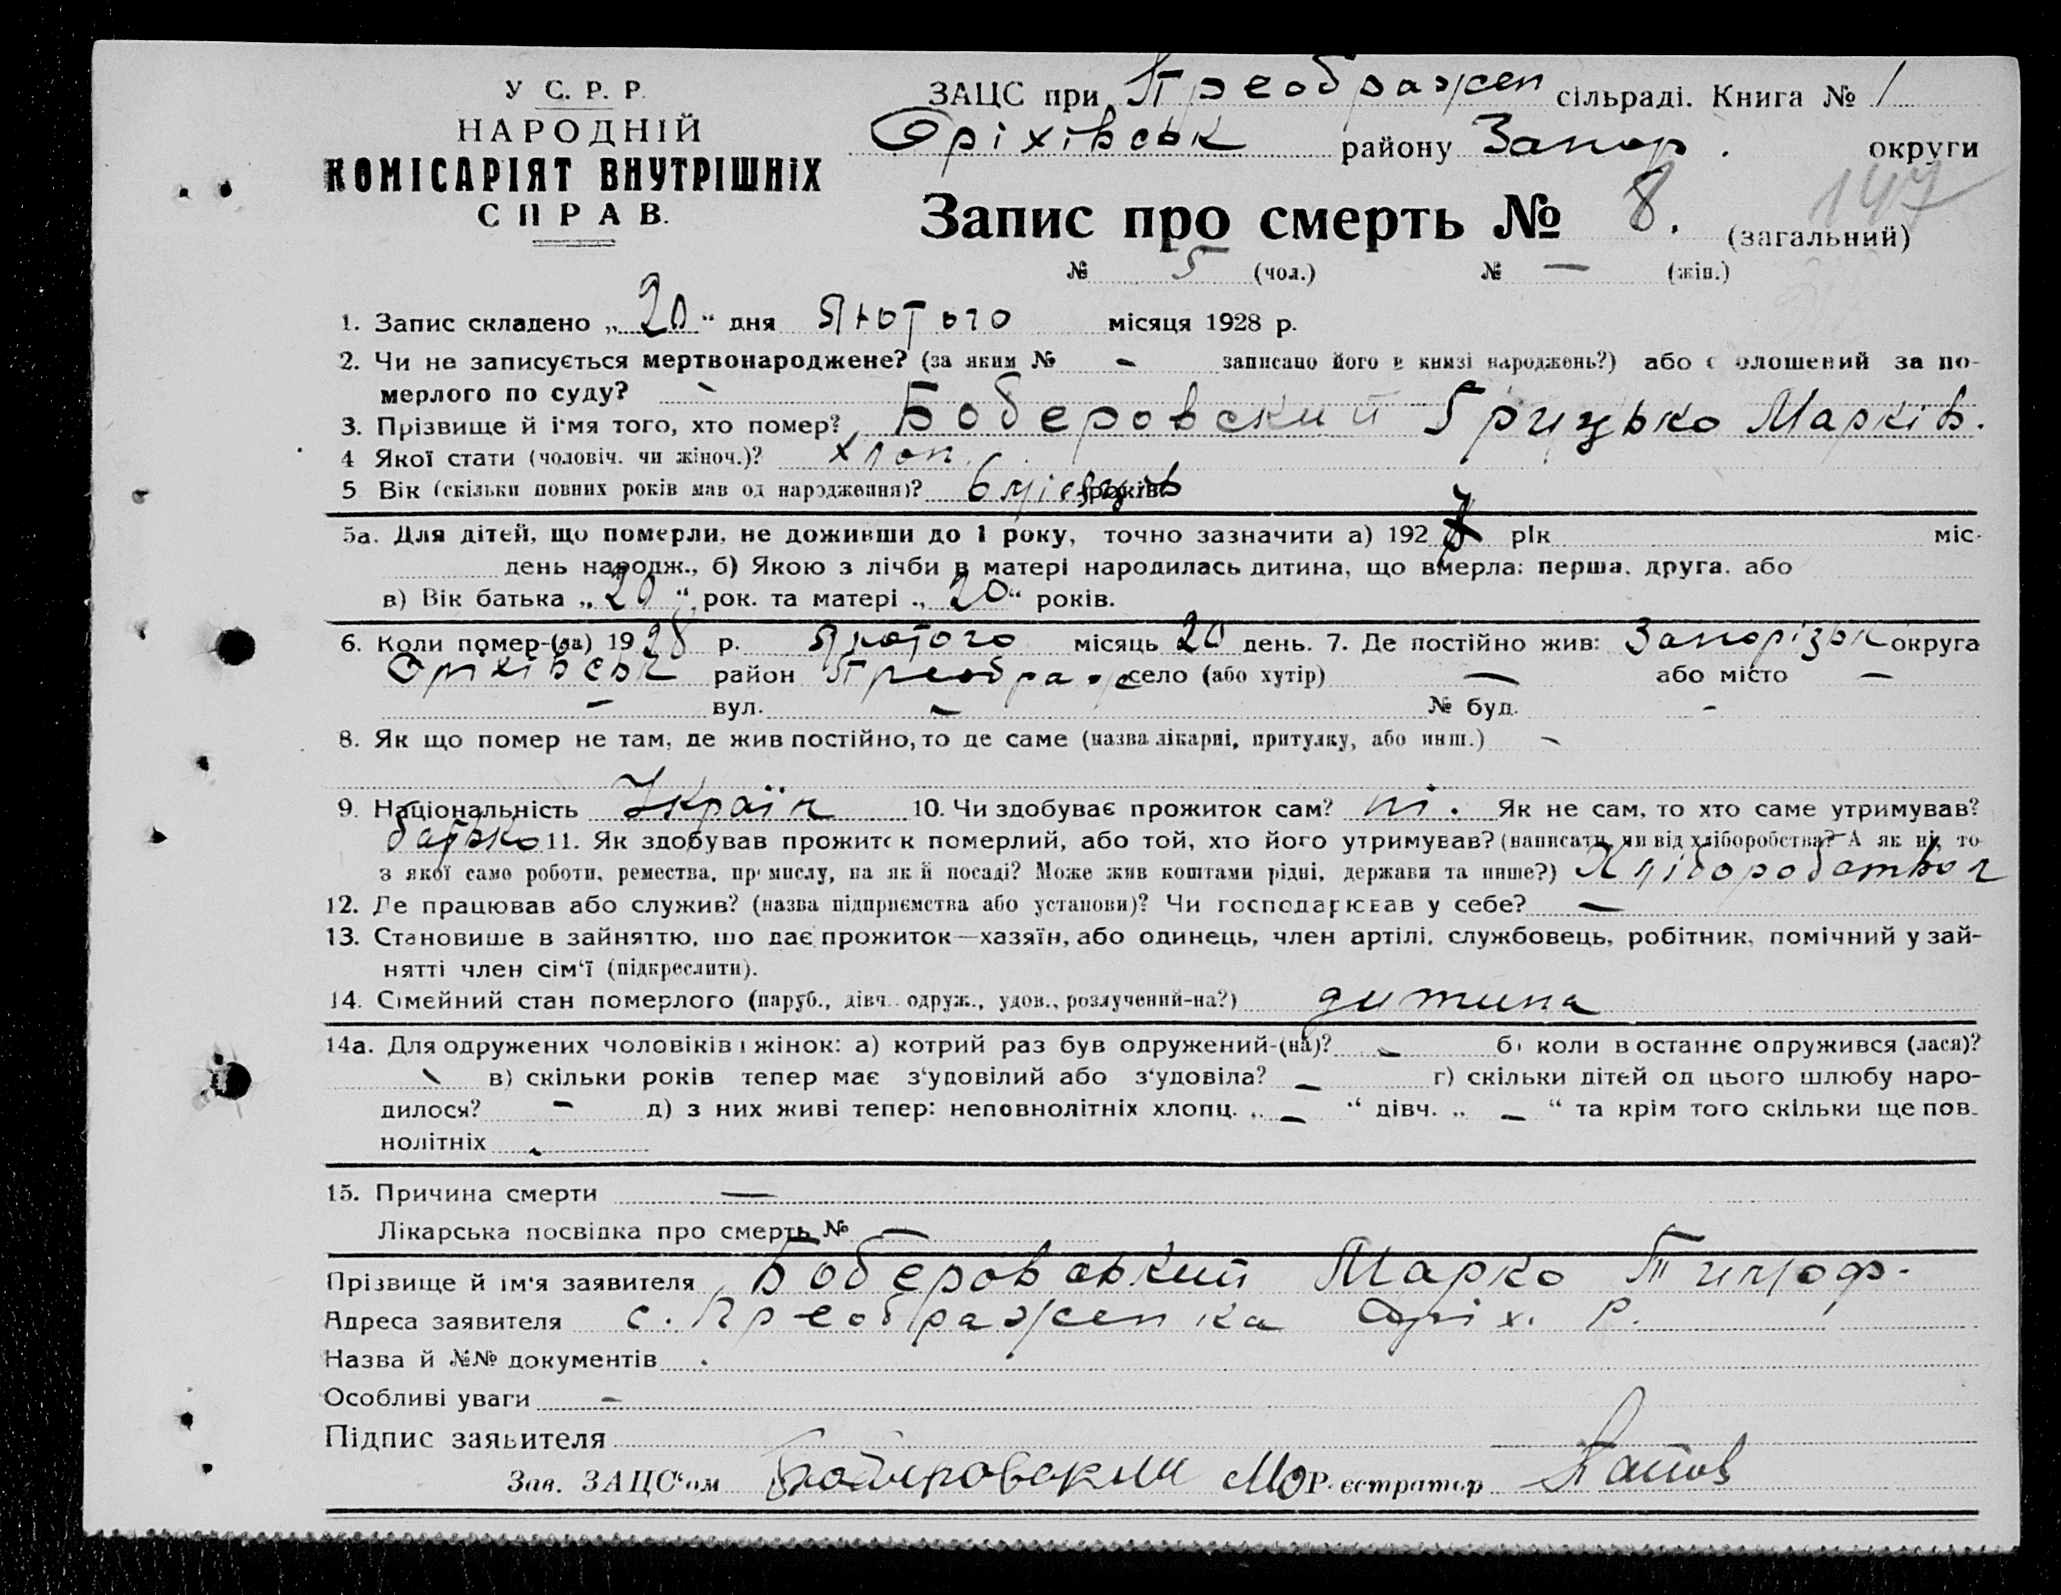 У С. Р. Р.
НАРОДНІЙ
КОМІСАРІЯТ ВНУТРІШНІХ
СПРАВ.
ЗАЦС при Преображен сільраді. Книга № 1
Оріхівськ району Запор. округи
147
Запис про смерть № 8. (загальний)
№ 5 (чол.) № — (жін.)
1. Запис складено „20“ дня Лютого місяця 1928 р.
2. Чи не записується мертвонароджене? (за яким № - записано його в книзі народжень?) або оголошений за по-
мерлого по суду? -
3. Прізвище й ім'я того, хто помер? Бодеровский Грицько Марків.
4 Якої стати (чоловіч. чи жіноч.)? хлоп.
5 Вік (скільки повних років мав од народження)? 6 місяців років
5а. Для дітей, що померли, не доживши до 1 року, точно зазначити а) 1927 рік міс.
день народж., б) Якою з лічби в матері народилась дитина, що вмерла: перша, друга, або
в) Вік батька „20“ рок. та матері „20“ років.
6. Коли помер-(ла) 1928 р. Лютого місяць 20 день. 7. Де постійно жив: Запорізьк округа
Оріхівськ район Преображ село (або хутір) — або місто —
- вул. - № буд. -
8. Як що помер не там, де жив постійно, то де саме (назва лікарні, притулку, або инш.) -
9. Національність Україн 10. Чи здобуває прожиток сам? ні. Як не сам, то хто саме утримував?
батько 11. Як здобував прожиток померлий, або той, хто його утримував? (написати чи від хліборобства? А як ні, то
з якої само роботи, ремества, промислу, на якій посаді? Може жив коштами рідні, держави та инше?) Хліборобством
12. Де працював або служив? (назва підприємства або установи)? Чи господарював у себе? —
13. Становище в зайняттю, що дає прожиток—хазяїн, або одинець, член артілі, службовець, робітник, помічний у зай-
нятті член сім'ї (підкреслити).
14. Сімейний стан померлого (паруб., дівч. одруж., удов., розлучений-на?) дитина
14а. Для одружених чоловіків і жінок: а) котрий раз був одружений-(на)? - б) коли востаннє одружився (лася)?
- в) скільки років тепер має з'удовілий або з'удовіла? - г) скільки дітей од цього шлюбу наро-
дилося? - д) з них живі тепер: неповнолітніх хлопц. „-“ дівч. „-“ та крім того скільки ще пов-
нолітніх -
15. Причина смерти —
Лікарська посвідка про смерть № —
Прізвище й ім'я заявителя Бодеровський Марко Тимоф.
Адреса заявителя с. Преображенка Оріх. р.
Назва й №№ документів .
Особливі уваги -
Підпис заявителя
Зав. ЗАЦС'ом Бодеровский М Реєстратор